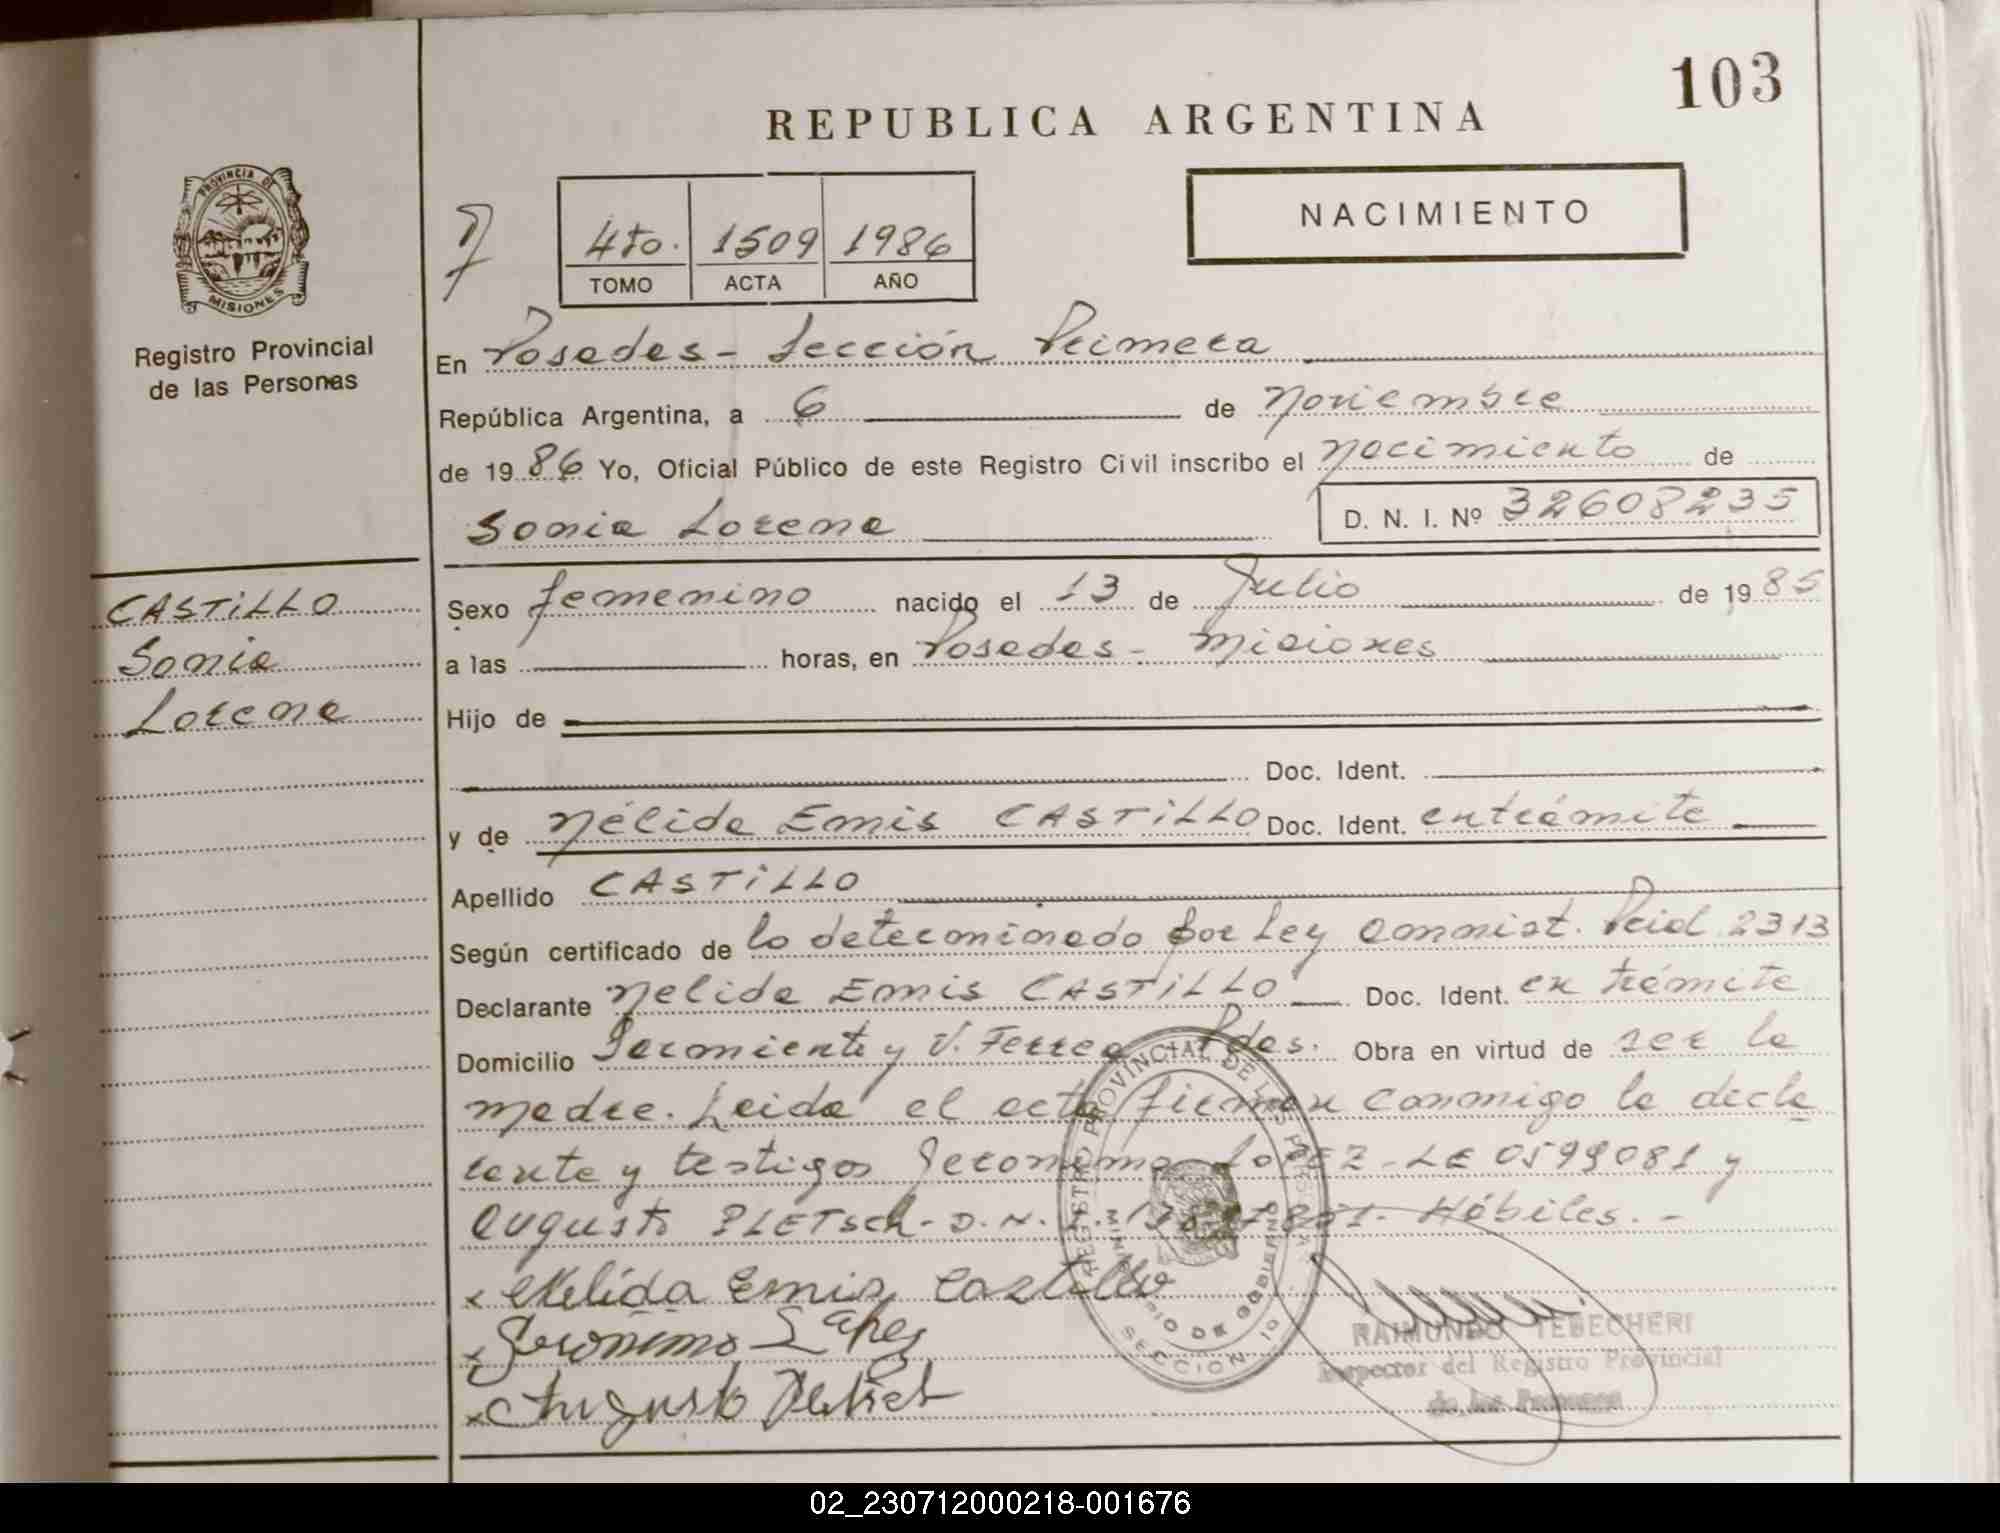 103
REPUBLICA ARGENTINA
PROVINCIA DE
MISIONES
Registro Provincial
de las Personas
4to. 1509 1986
TOMO ACTA AÑO
NACIMIENTO
En Posadas - Sección Primera
República Argentina, a 6 de Noviembre
de 1986 Yo, Oficial Público de este Registro Civil inscribo el Nacimiento de
Sonia Lorena D. N. I. Nº 32608235
CASTILLO
Sonia
Lorena
Sexo femenino nacido el 13 de Julio de 1985
a las horas, en Posadas - Misiones
Hijo de
Doc. Ident.
y de Nélida Emis CASTILLO Doc. Ident. en trámite
Apellido CASTILLO
Según certificado de lo determinado por Ley Amnist. 2313
Declarante Nelida Emis CASTILLO Doc. Ident. en trámite
Domicilio Sarmiento y V. Ferrea Pdas. Obra en virtud de ser la
madre. Leida el acta firman conmigo la decla
rante y testigos Jeronimo LOPEZ - LE 0599081 y
Augusto PLETSCH - D.N.I. Hábiles. -
x Nelida Emis Castillo
x Jeronimo Lopez
x Augusto Pletsch
REGISTRO PROVINCIAL DE LAS PERSONAS
MINISTERIO DE GOBIERNO
SECCION 1o
RAIMUNDO TEBECHERI
Inspector del Registro Provincial
de las Personas
02_230712000218-001676